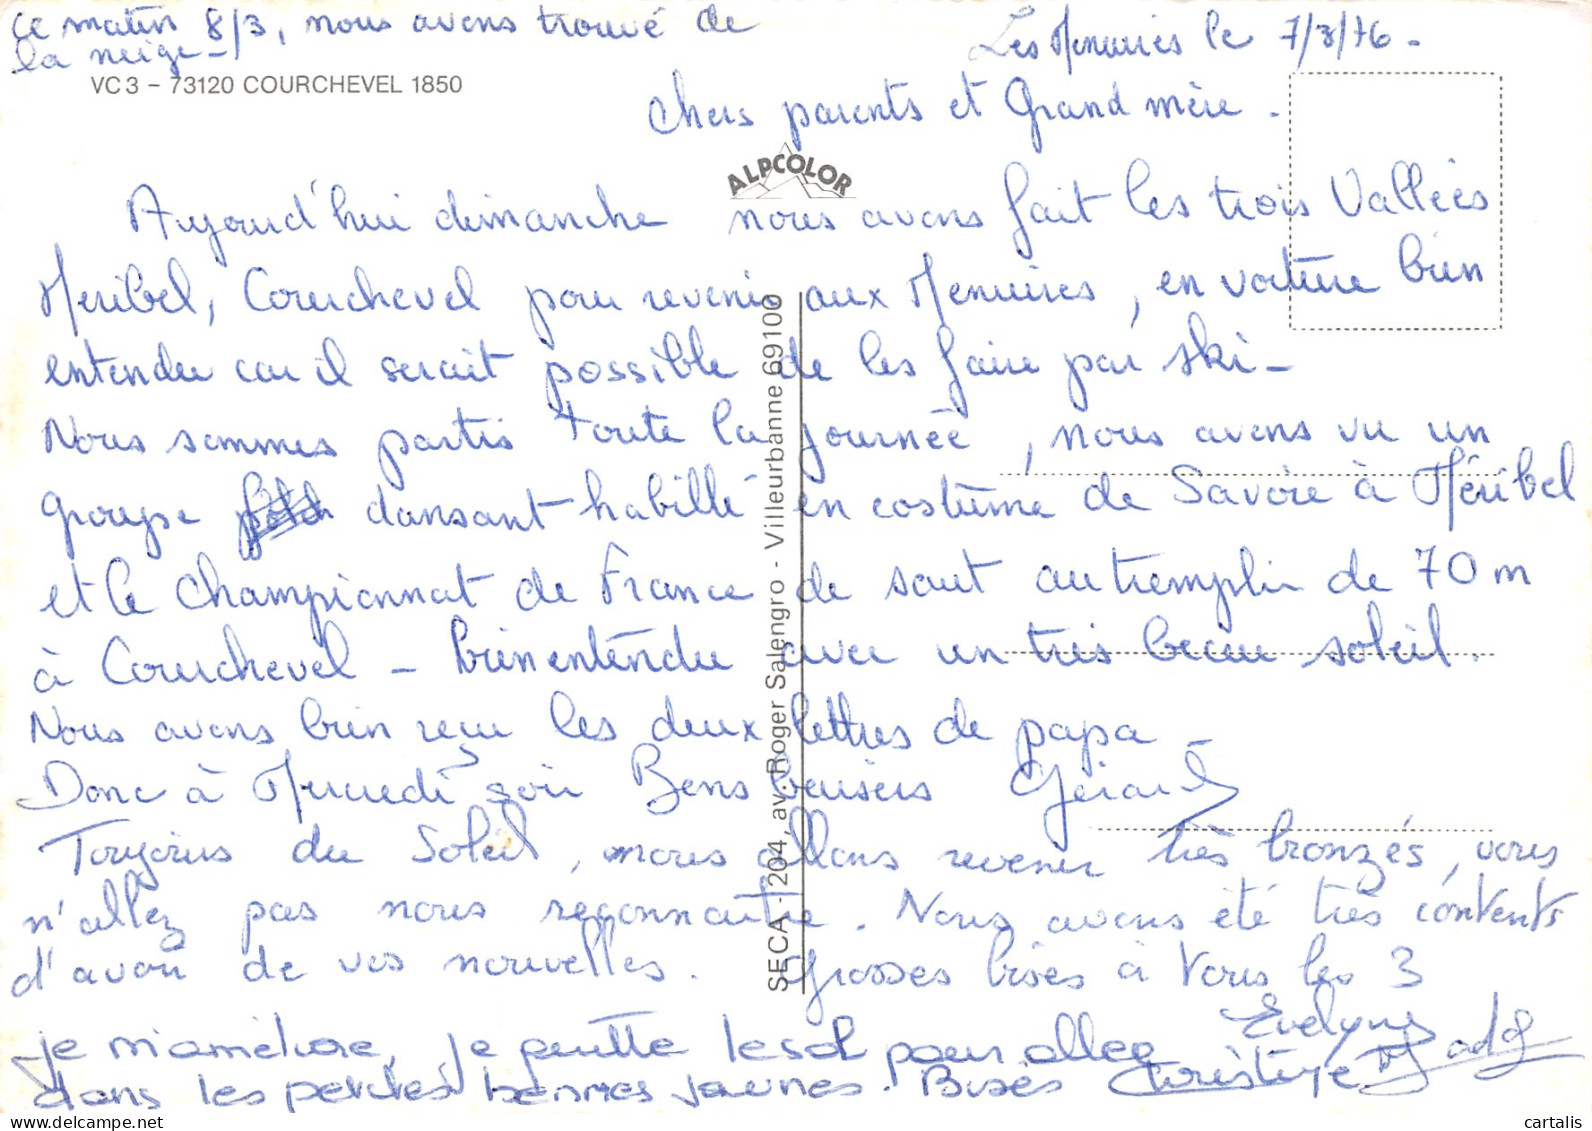 ce matin 8/3, nous avons trouvé de
la neige -
Les Menuires le 7/3/76 -
VC 3 – 73120 COURCHEVEL 1850
Chers parents et Grand mère.
ALPCOLOR
Aujourd'hui dimanche nous avons fait les trois Vallées
Meribel, Courchevel pour revenir aux Menuires, en voiture bien
entendu car il serait possible de les faire par ski -
Nous sommes partis toute la journée, nous avons vu un
groupe dansant habillé en costume de Savoie à Méribel
et le championnat de France de saut au tremplin de 70 m
à Courchevel - bien entendu avec un très beau soleil.
Nous avons bien reçu les deux lettres de papa -
Donc à Mercredi soir Bons baisers Gérard
Toujours du Soleil, nous allons revenir très bronzés, vous
n'allez pas nous reconnaitre. Nous avons été très contents
d'avoir de vos nouvelles. Grosses bises à Vous les 3
Evelyne
je m'améliore, je quitte le sol pour aller
dans les petites bennes jaunes. Bises Christine
SECA - 204, av. Roger Salengro - Villeurbanne 69100
cartalis